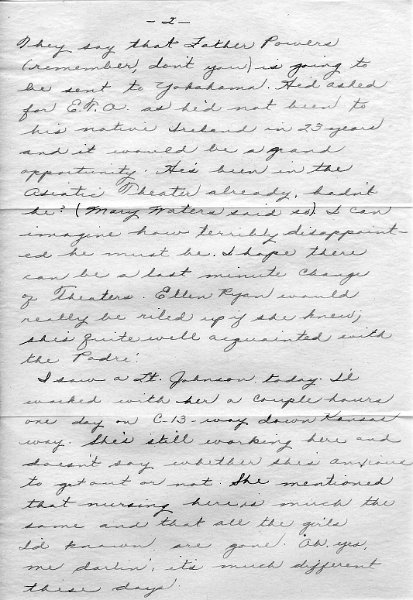 -2-
They say that Father Powers
(remember, don't you) is going to
be sent to Yokahama. He'd asked
for E.T.O. as he'd not been to
his native Ireland in 23 years
and it would be a grand
opportunity. He's been in the
Asiatic Theater already, hadn't
he? (Mary Waters said so) I can
imagine how terribly disappoint-
ed he must be. I hope there
can be a last minute change
of Theaters. Ellen Ryan would
really be riled up if she knew,
she's quite well acquainted with
the Padre.
I saw a Lt. Johnson today. I'd
worked with her a couple hours
one day on C-13-way down Kansas
way. She's still working here and
doesn't say whether she's anxious
to get out or not. She mentioned
that nursing here is much the
same and that all the girls
I'd known are gone. Ah yes,
me darlin', it's much different
these days.